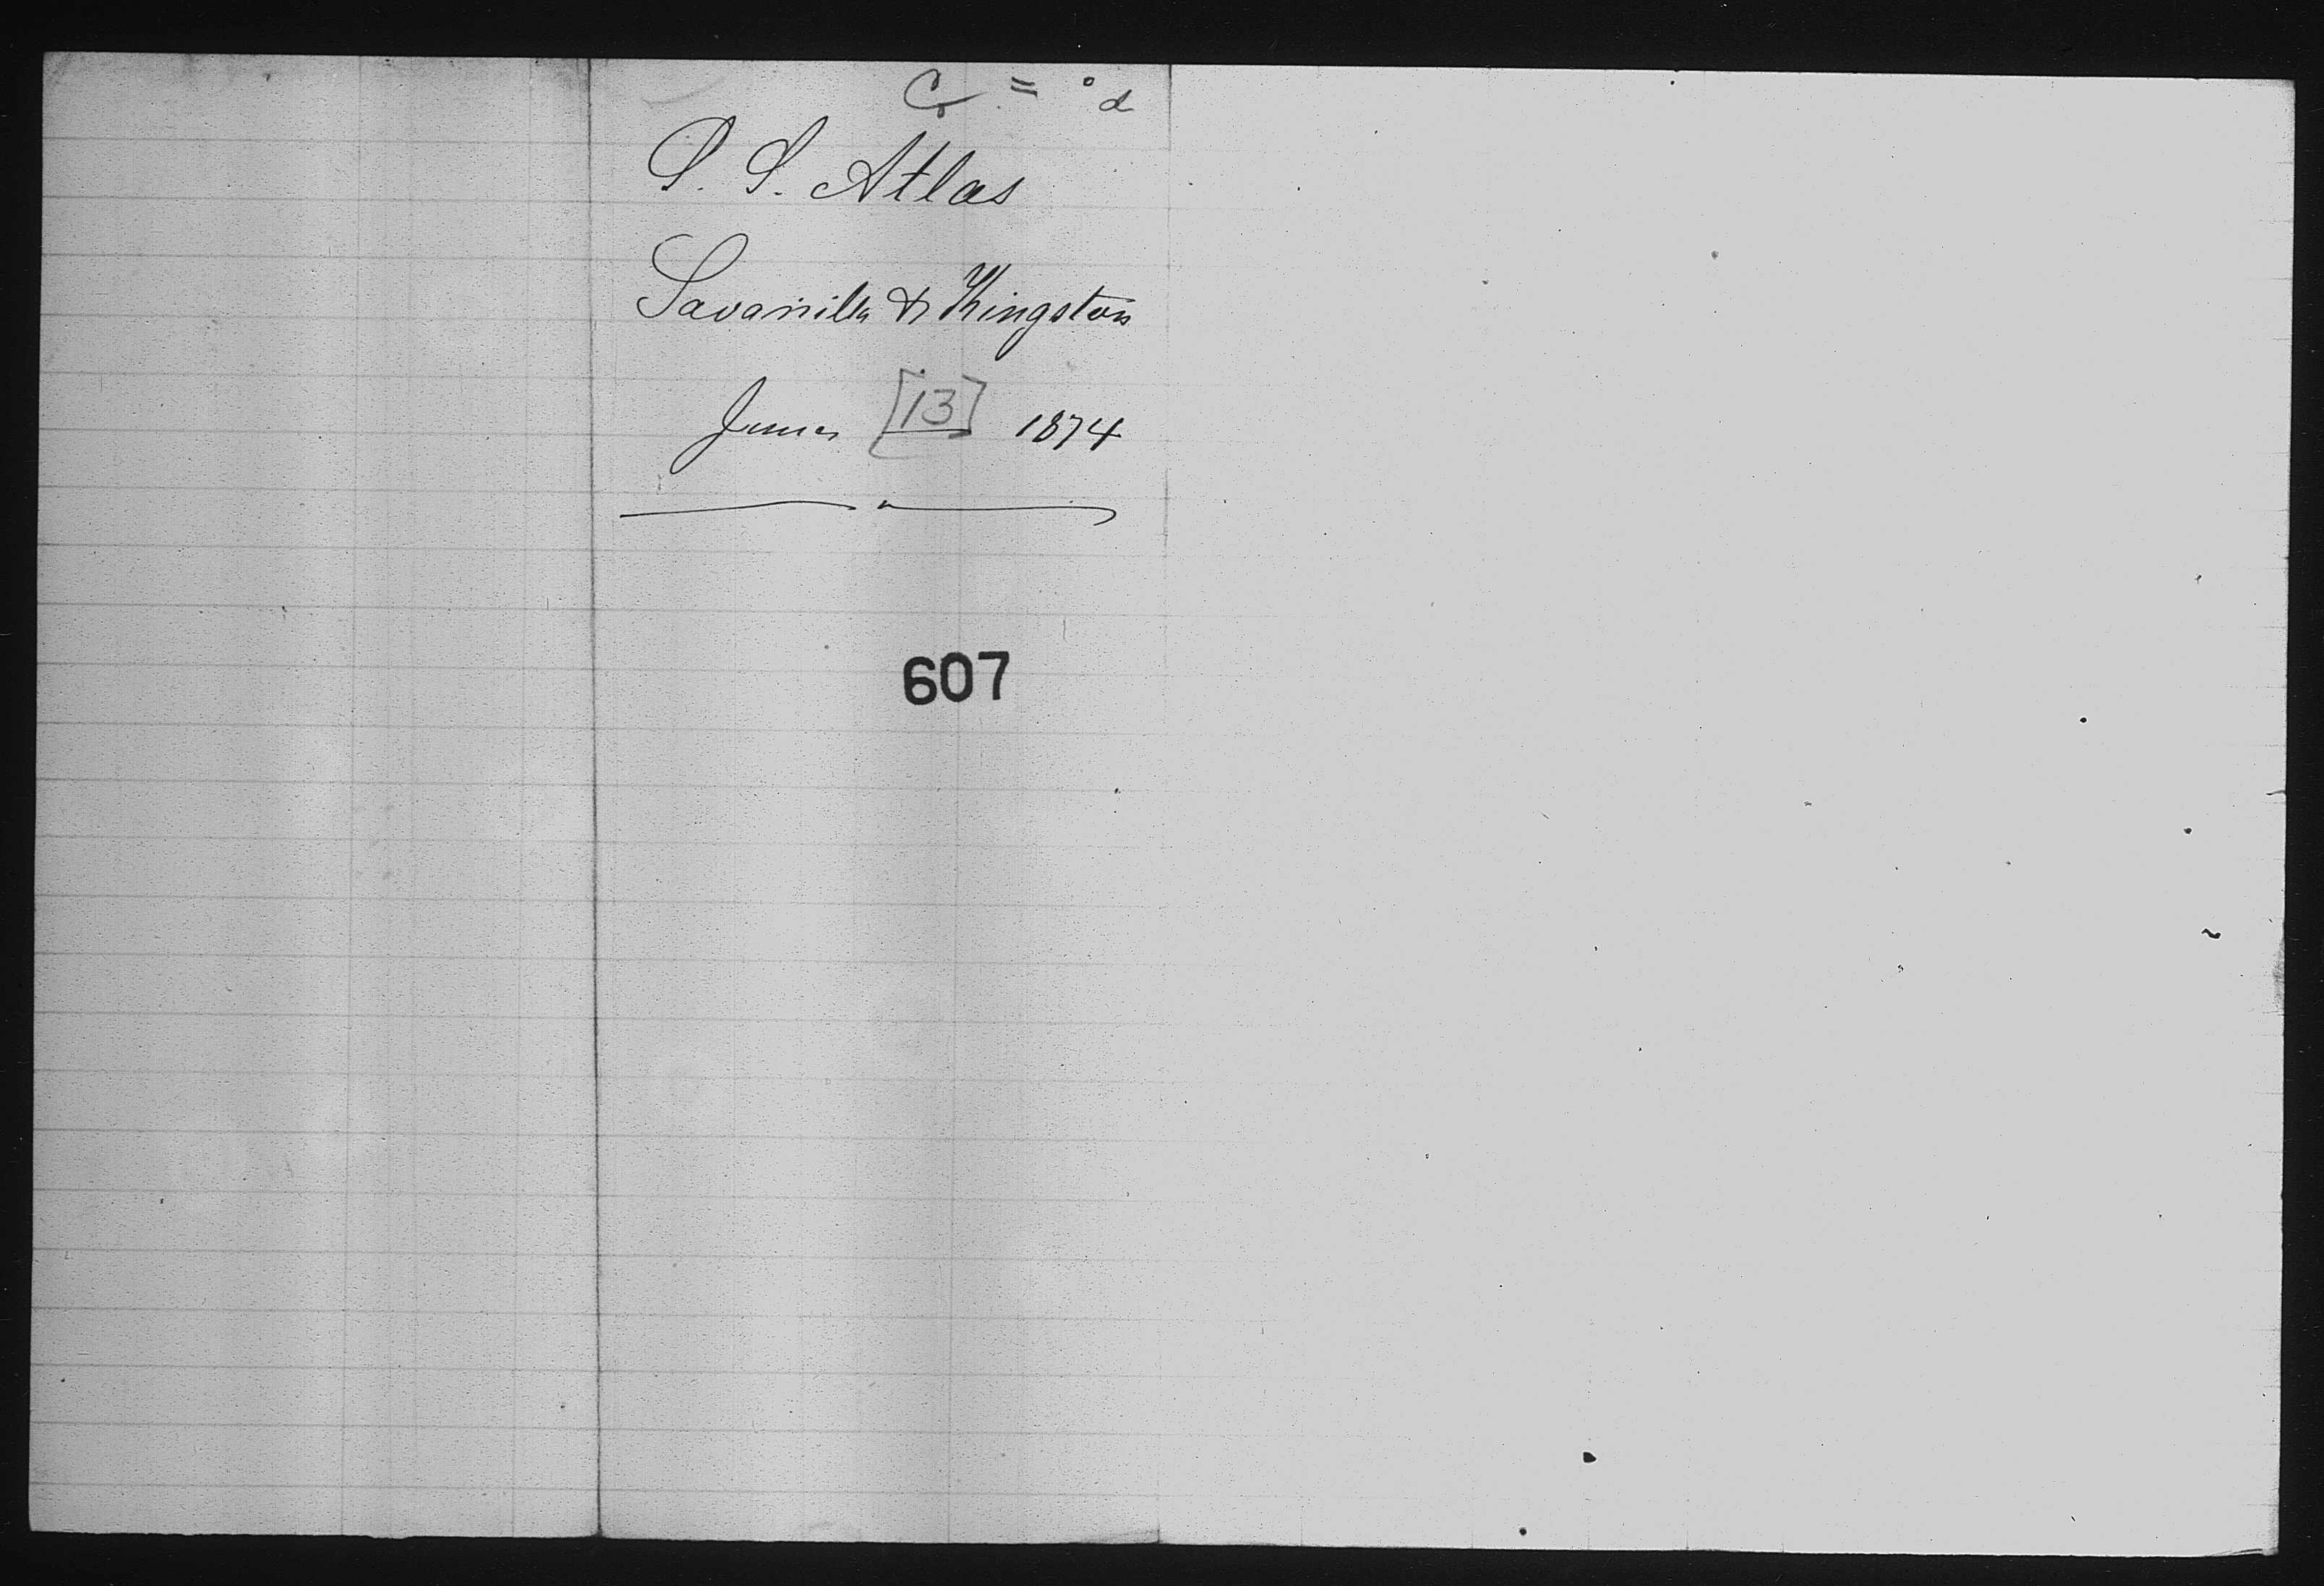 S. S. Atlas
Savanilla & Kingston
June [13] 1874
607